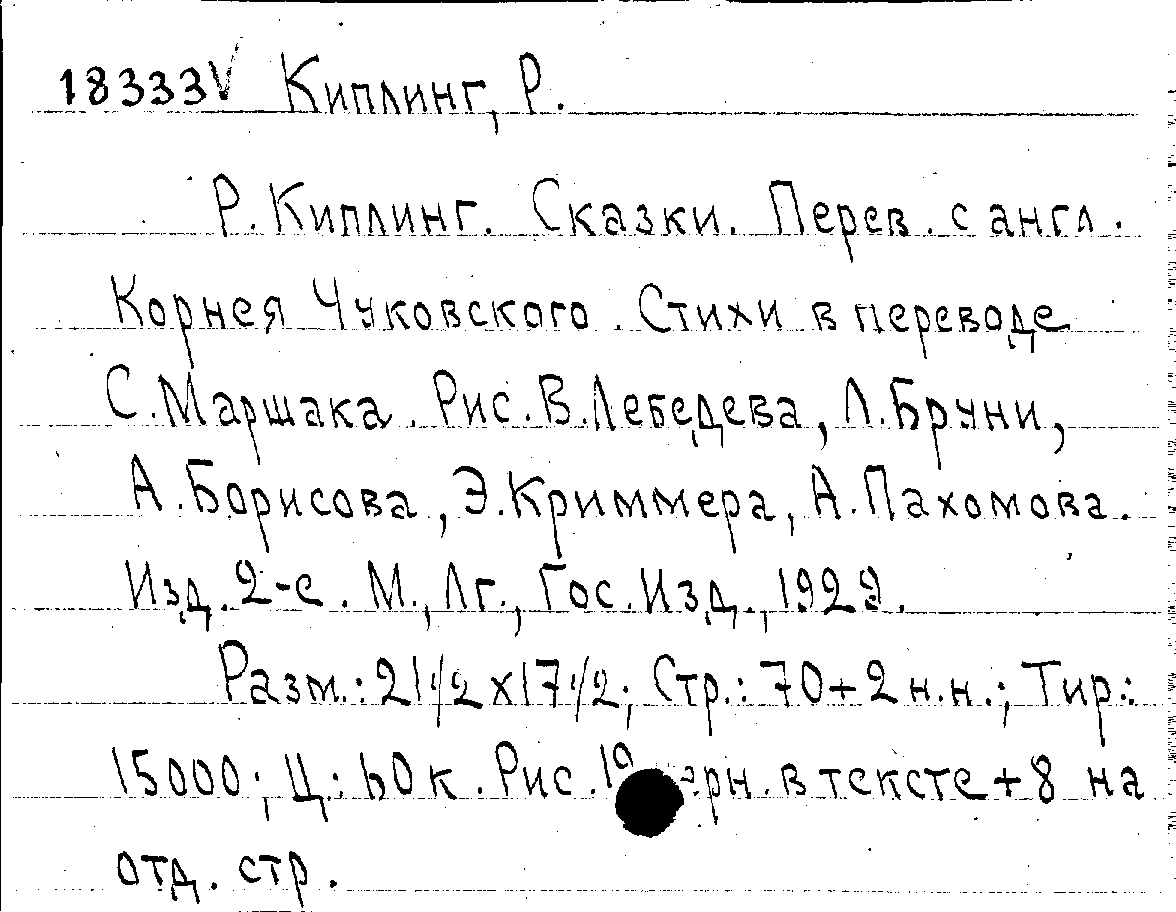 18333V Киплинг, Р.
Р. Киплинг. Сказки. Перев. с англ.
Корнея Чуковского. Стихи в переводе
С. Маршака. Рис. В. Лебедева, Л. Бруни,
А. Борисова, Э. Криммера, А. Пахомова.
Изд. 2-е. М., Лг., Гос. Изд., 1929.
Разм.: 21 1/2 х 17 1/2; Стр.: 70 + 2 н.н.; Тир.:
15000; Ц: 60 к. Рис. в тексте + 8 на
отд. стр.